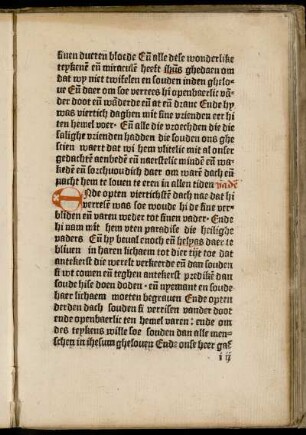 sinen duerren bloede Eñ alle dese wonderlike
teykenē eñ miraculē heeft ihūs ghedaen om
dat wy niet twifelen en souden inden ghelo-
ue Eñ daer om soe verrees hi openbaerlic vā
der doot eñ wāderde eñ at eñ dranc Ende hy
was viertich daghen mit sine vrienden eer hi
ten hemel voer · Eñ alle die vroechden die die
salighe vrienden hadden die souden ons ghe
scien waert dat wi hem vlitelic mit al onser
gedachtē aenbedē eñ naerstelic mindē eñ wa
liedē eñ sorchuoudich daer om warē dach eñ
nacht hem te louen te eren in allen tiden
Ende opten viertichstē dach nae dat hi
verresē was soe woude hi de sine ver-
bliden eñ varen weder tot sinen vader · Ende
hi nam mit hem vten paradise die heilighe
vaders Eñ hy beual enoch eñ helyas daer te
bliuen in haren lichaem tot dier tijt toe dat
antekerst die werelt verkeerde eñ dan souden
si we comen eñ teghen antekerst predikē dan
soude hise doen doden · eñ nyemant en soude
haer lichaem moeten begrauen Ende opten
derden dach souden si verrisen vander doot
ende openbaerlic ten hemel varen : ende om
des teykens wille soe souden dan alle men-
schen in ihesum ghelouen Ende onse heer gaf
i ij